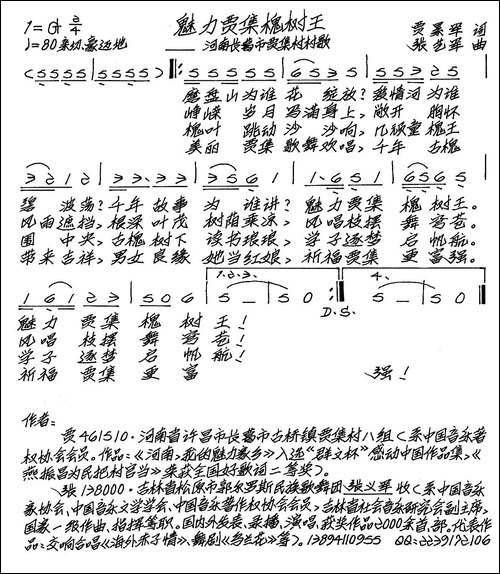 魅力贾集槐树王
1=G 2/4
♩=80 亲切、豪迈地
——河南长葛市贾集村村歌
贾 词
张 曲
(5 5 5 5 | 5 5 5 5) ‖: 5 5 5 5 5 | 6 5 3 5 | 5 5 3 2 5 |
磨盘山为谁 花 绽放?爱情河为谁
峥嵘 岁月 写满身上,敞开 胸怀
槐叶 跳动 沙 沙响,几级童 槐王
美丽 贾集 歌舞欢唱,千年 古槐
3 2 1 2 | 3 3· 3 3 | 3 5 6 1 | 1· 6 5 1 | 6 5 6 5 |
碧 波荡?千年 故事 为 谁讲?魅力贾集 槐树王。
风雨遮挡,根深叶茂 树荫乘凉,风唱枝摆 舞 苍。
围 中央,古槐树下 读书琅琅,学子逐梦 启 帆航。
带来吉祥,男女良缘 她当红娘,祈福贾集 更 富强。
1 6 1 2 3 | 5 0 6 | 5 — | 5 0 :‖ 5 — | 5 0 ‖
1. 2. 3.
4.
D.S.
魅力 贾集 槐 树 王!
风唱 枝摆 舞 苍!
学子 逐梦 启 帆 航!
祈福 贾集 更 富
强!
作者:
贾461510·河南省许昌市长葛市古桥镇贾集村八组(系中国音乐著
权协会会员。作品:《河南,我的魅力家乡》入选“群文杯”感动中国作品集,《
燕振昌为民把村官当》荣获全国好歌词二等奖)。
张138000·吉林省松原市郭尔罗斯民族歌舞团 张义军 收(系中国音乐
家协会、中国音乐文学学会、中国音乐著作权协会会员,吉林省社会音乐研究会副主席,
国家一级作曲、指挥等职。国内外发表、录播、演唱、获奖作品2000余首、部。代表作
品:交响合唱《海外赤子情》、舞剧《乌兰花》等)。13894110955 QQ:2239172106